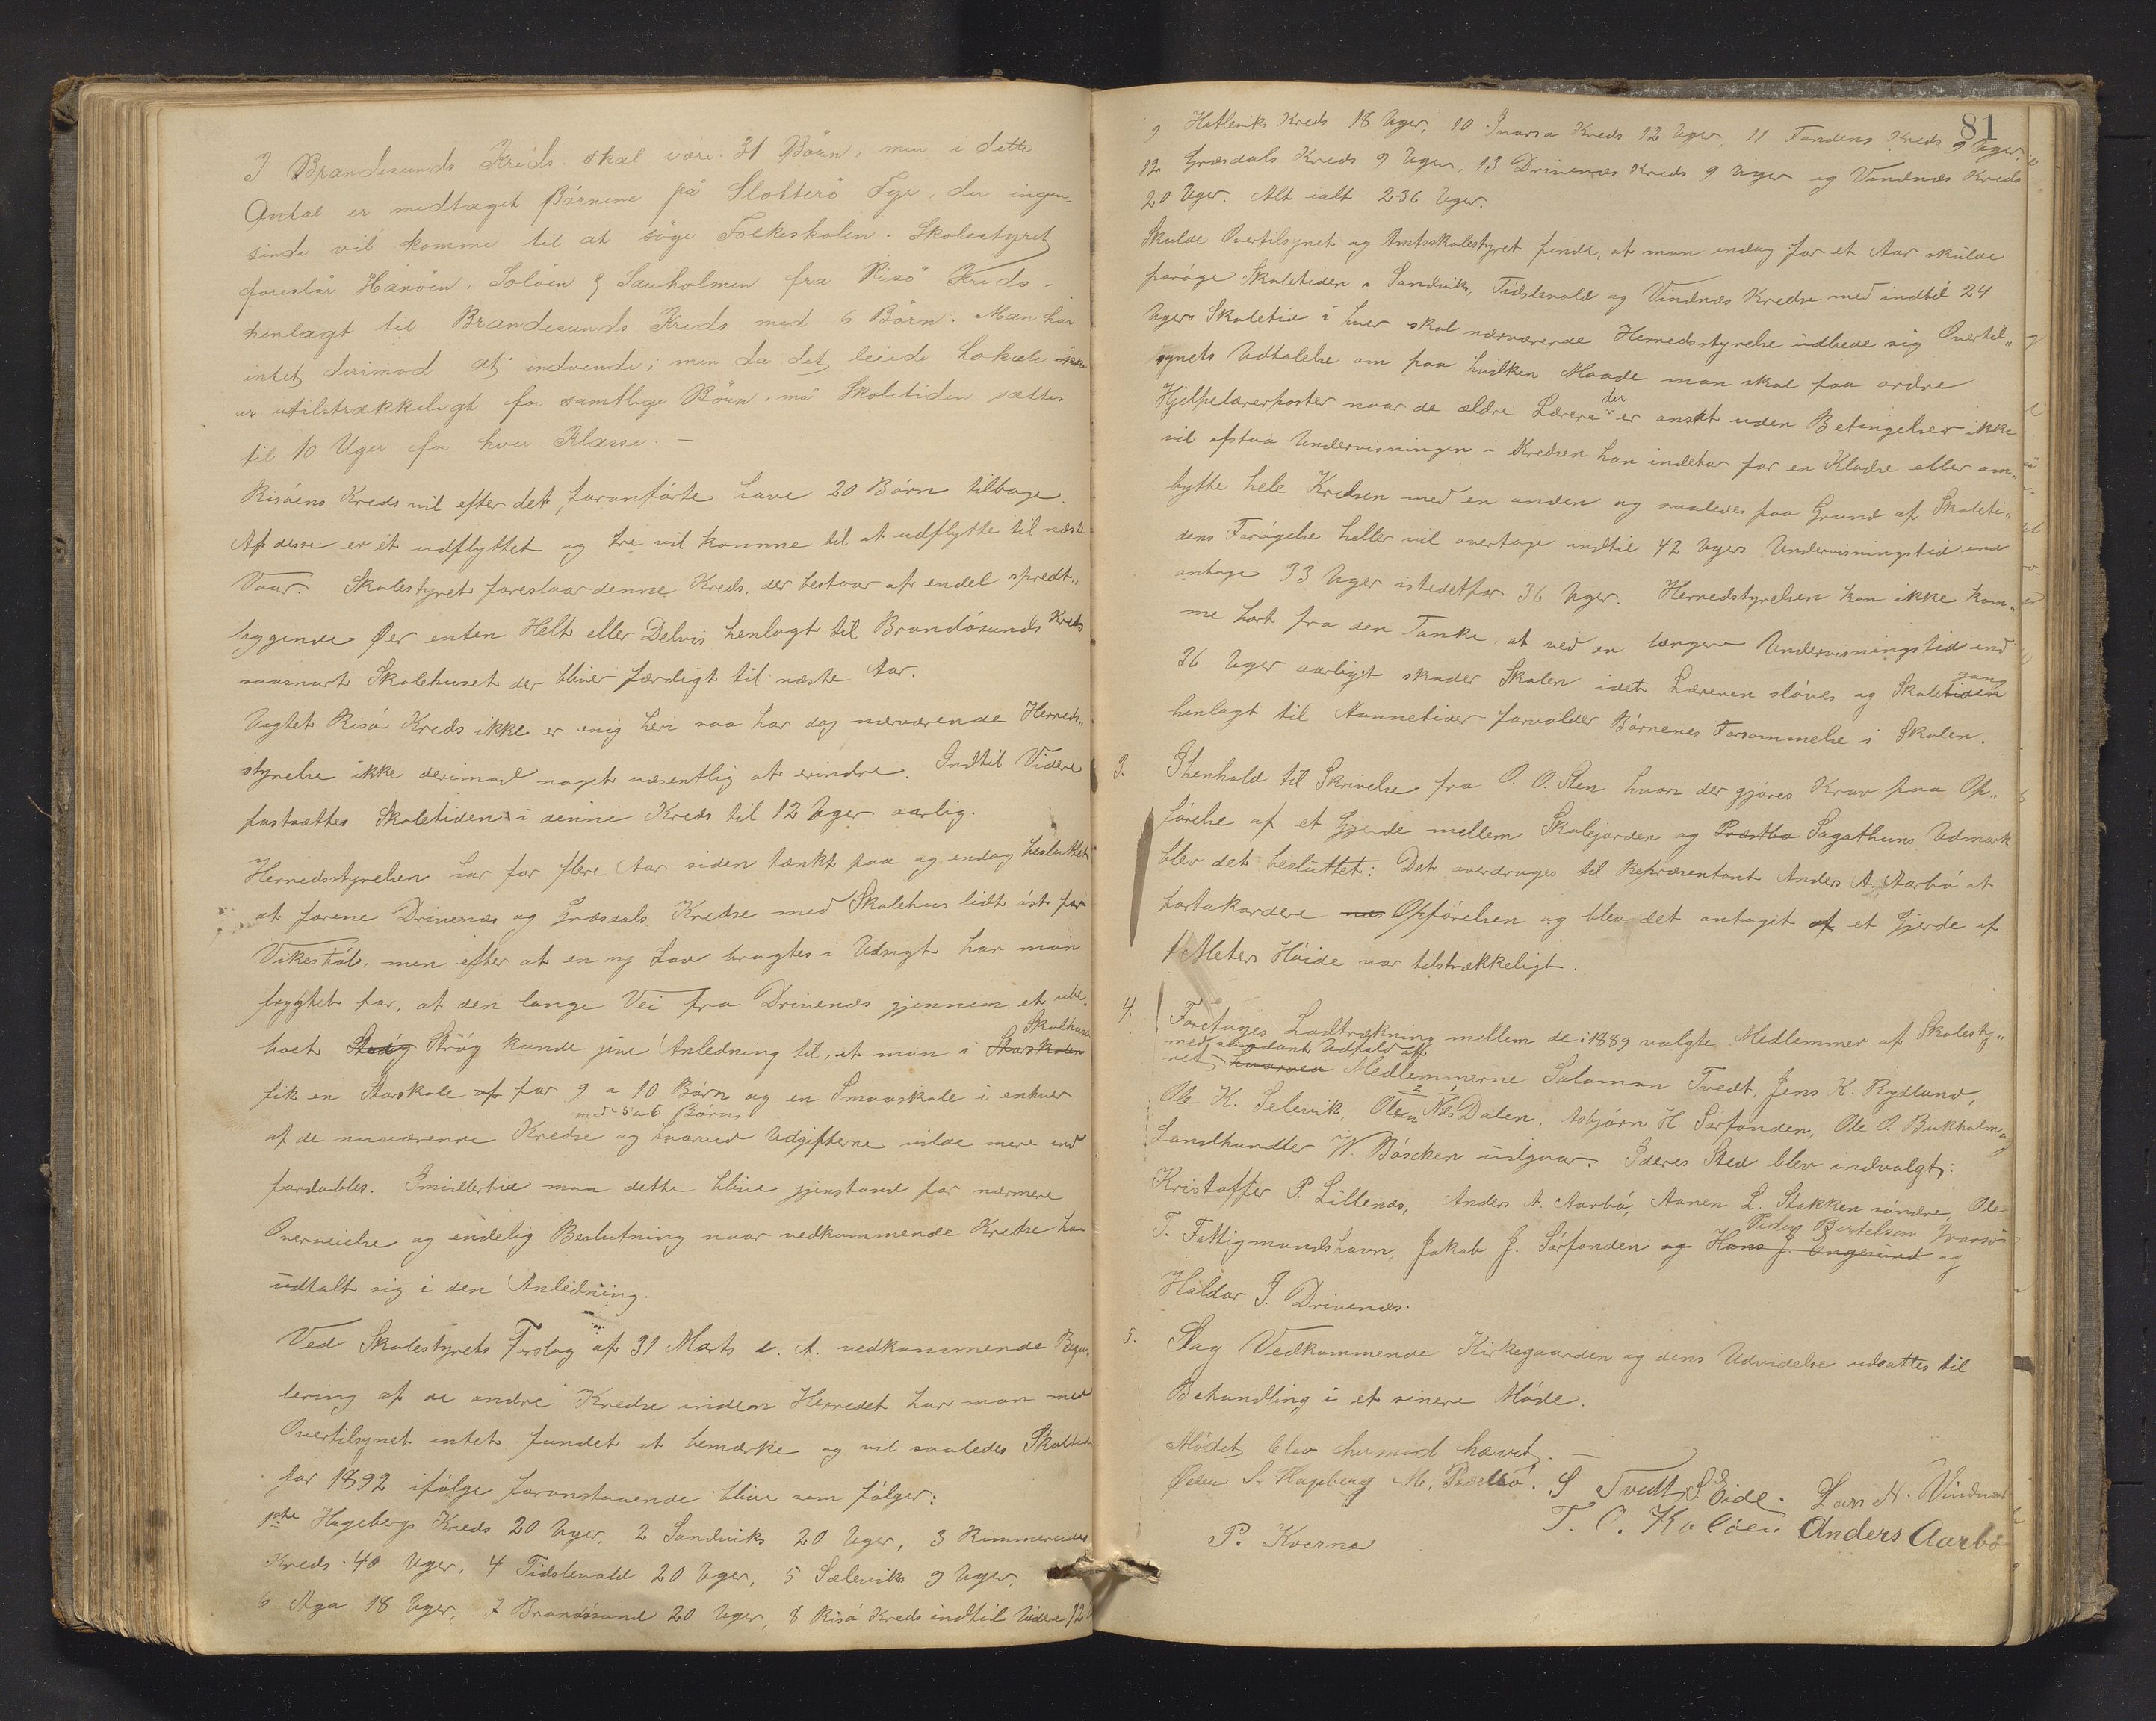 I Brandesunds Kreds skal være 31 Börn, men i dette
Antal er medtaget Börnene på Slotterö Fyr, der ingen-
sinde vil komme til at söge Folkeskolen. Skolestyret
foreslår Hanöen, Solöen & Sauholmen fra Risö Kreds -
henlagt til Brandesunds Kreds med 6 Börn. Man har
intet derimod at indvende, men da det leiede Lokale
er utilstrækkeligt for samtlige Börn, må Skoletiden sættes
til 10 Uger for hver Klasse. -
Risöens Kreds vil efter det foranförte have 20 Börn tilbage.
Af disse er ét udflyttet og tre vil komme til at udflytte til næste
Vaar. Skolestyret foreslaar denne Kreds, der bestaar af endel spredt„
liggende Øer enten Helt eller Delvis henlagt til Brandösunds Kreds
saasnart Skolehuset der bliver færdigt til næste Aar.
Uagtet Risö Kreds ikke er enig heri saa har dog nærværende Herreds„
styrelse ikke derimod noget væsentlig at erindre. Indtil Videre
fastsættes Skoletiden i denne Kreds til 12 Uger aarlig.
Herredsstyrelsen har for flere Aar siden tænkt paa og endog besluttet
at forene Drivenes og Græsdals Kredse med Skolehus lidt öst for
Vikestöl, men efter at en ny Lov bragtes i Udsigt har man
frygtet for, at den lange Vei fra Drivenes gjennem et ube„
boet Strög Strög kunde give Anledning til, at man i Storskolen Skolhuset
fik en Storskole af for 9 a 10 Börn og en Smaaskole i enhver
af de nuværende Kredse med 5 a 6 Börn og hvorved Udgifterne vilde mere end
fordobles. Imidlertid maa dette blive gjenstand for nærmere
Overveielse og endelig Beslutning naar vedkommende Kredse har
udtalt sig i den Anledning.
Ved Skolestyrets Forslag af 31 Marts d. A. vedkommende Regu„
lering af de andre Kredse inden Herredet har man med
Overtilsynet intet fundet at bemærke og vil saaledes Skoletiden
for 1892 ifölge foranstaaende blive som fölger:
1ste Hagebergs Kreds 20 Uger, 2 Sandviks 20 Uger, 3 Rimmereides
Kreds 40 Uger, 4 Tidslevold 20 Uger, 5 Sæleviks 9 Uger,
6 Aga 18 Uger, 7 Brandösund 20 Uger, 8 Risö Kreds indtil Videre 12
81
9 Hatleviks Kreds 18 Uger, 10 Ivarsø Kreds 12 Uger 11 Fondens Kreds 9 Uger,
12 Græsdals Kreds 9 Uger, 13 Drivenes Kreds 9 Uger og Vindnæs Kreds
20 Uger. Alt ialt 236 Uger.
Skulde Overtilsynet og Amtsskolestyret finde, at man endog for et Aar skulde
foröge Skoletiden i Sandvik, Tidslevold og Vindnæs Kredse med indtil 24
Ugers Skoletid i hver skal nærværende Herredsstyrelse udbede sig Overtil„
synets Udtalelse om paa hvilken Maade man skal faa ordre
Hjelpelærerposter naar de ældre Lærere der er ansat uden Betingelser ikke
vil afstaa Undervisningen i Kredsen han indehar for en Kladse eller om„
bytte hele Kredsen med en anden og saaledes paa Grund af Skoleti„
dens Forögelse heller vil overtage indtil 42 Ugers Undervisningstid end
antage 33 Uger istedetfor 36 Uger. Herredstyrelsen kan ikke kom„
me bort fra den Tanke, at ved en længere Undervisningstid end
36 Uger aarligt skader Skolen idet Læreren slöves og Skoletiden gang
henlagt til Aannetider forvolder Börnenes Forsømmelse i Skolen.
3. Ihenhold til Skrivelse fra O. O. Sten hvori der gjøres Krav paa Op„
förelse af et Gjerde mellem Skolejorden og Præstbø Sagathuns Udmark
blev det besluttet: Det overdrages til Repræsentant Anders A. Aarbö at
bortakordere Opförelsen og blev det antaget at et Gjerde af
1 Meters Höide var tilstrækkeligt.
4. Foretages Lodtrækning mellem de i 1889 valgte Medlemmer af Skolesty„
ret med saadant Udfald at hvorved Medlemmerne Salamon Tvedt, Jens K. Rydland,
Ole K. Selevik, Olsen Nils Dalen, Asbjørn H Sørfonden, Ole O. Bukholm og
Landhandler W. Böschen udgaar. I deres Sted blev indvalgt:
Kristoffer P. Lillenæs, Anders A. Aarbö, Aanen L. Stokken söndre, Ole
T. Fattigmandshavn, Jakob J. Sörfonden og Hans J. Engesund Peder Bertelsen Ivarsö og
Haldor J. Drivenæs.
5. Sag Vedkommende Kirkegaarden og dens Udvidelse udsattes til
Behandling i et senere Möde.
Mödet blev hermed hævet. -
Østen S. Hageberg M. Præstbö. S Tvedt S Eide. Lars N. Vindnæs
P. Kverna T. O. Kalöen Anders Aarbö